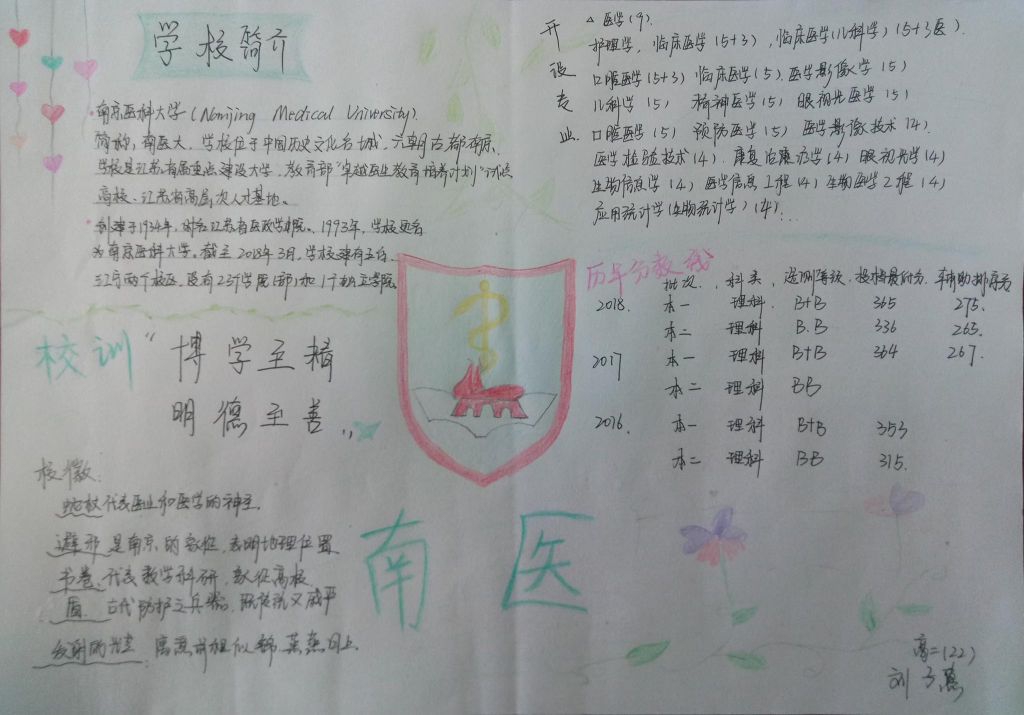 学校简介
南京医科大学(Nanjing Medical University)
简称，南医大，学校位于中国历史文化名城，六朝古都南京
学校是江苏省属重点建设大学，教育部"卓越医生教育培养计划"试点
高校、江苏省高层次人才基地。
创建于1934年，时名江苏省立医政学院。1993年，学校更名
为南京医科大学。截至2018年3月，学校建有五台、
江宁两个校区，设有23个学院(部)和1个独立学院
校训
"博学至精
明德至善"
校徽
蛇杖代表医业和医学的神圣。
避邪是南京的象征，表明地理位置
书卷，代表教学科研，象征高校
盾 古代防护之兵器
发射的光芒
南医
开设专业
△医学(9)
护理学，临床医学(5+3)，临床医学(儿科学)(5+3医)
口腔医学(5+3) 临床医学(5)，医学影像学(5)
儿科学(5) 精神医学(5) 眼视光医学(5)
口腔医学(5) 预防医学(5) 医学影像技术(4)
医学检验技术(4)，康复治疗学(4) 眼视光学(4)
生物信息学(4) 医学信息工程(4) 生物医学工程(4)
应用统计学(生物统计学)(4)...
历年分数线
批次，科类，选测等级，投档最低分，辅助排序分
2018 本一 理科 B+B 365 275.
本二 理科 B.B 336 263.
2017 本一 理科 B+B 364 267.
本二 理科 BB
2016. 本一 理科 B+B 353
本二 理科 BB 315.
高二(22)
刘